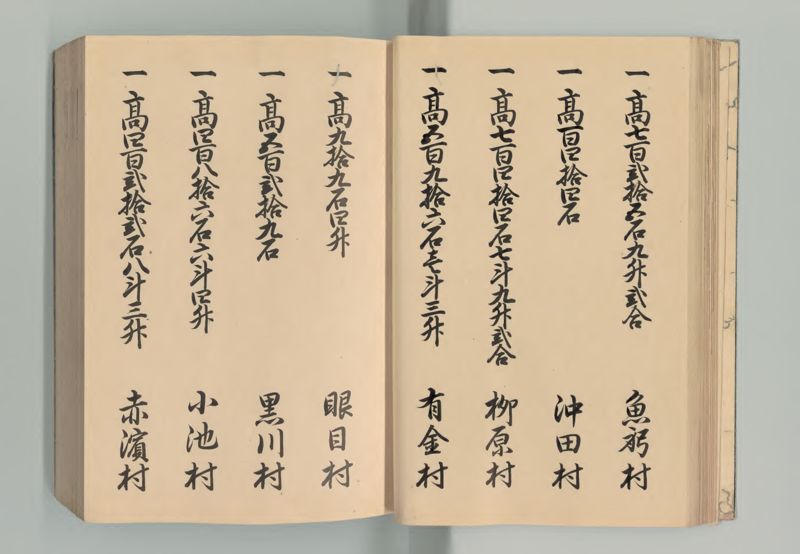 一 髙七百弐拾五石九升弐合 魚躬村
一 髙百四拾四石 沖田村
一 髙七百四拾四石七斗九升弐合 柳原村
一 髙五百九拾六石壱斗三升 有金村
一 髙九拾九石四升 眼目村
一 髙五百弐拾九石 黒川村
一 髙四百八拾六石六斗四升 小池村
一 髙四百弐拾弐石八斗三升 赤濱村